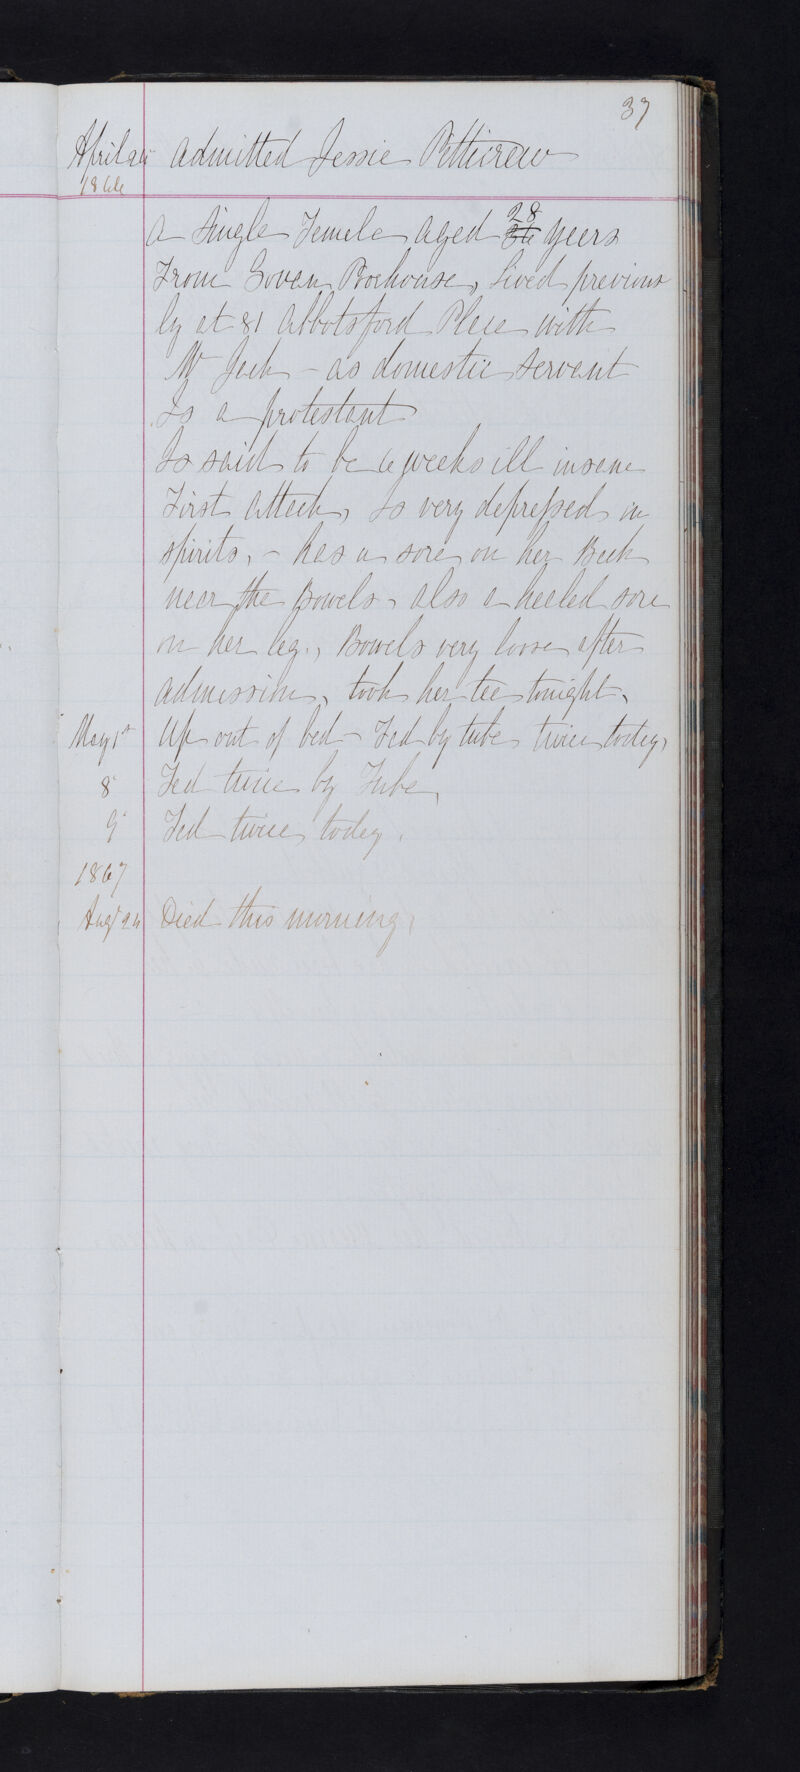 37
April admitted Jessie Petticrew
1866
a Single Female aged 28 years
From Govan Poorhouse, lived previous
ly at 81 Abbotsford Place with
Mr Jack - as domestic servant
Is a protestant
Is said to be 6 weeks ill insane
First attack, is very depressed in
spirits, - has a sore on her Back
near the Bowels - also a healed sore
on her leg., Bowels very loose after
admission, took her tea tonight.
May 1st Up out of bed - Fed by tube twice today,
8 Fed twice by Tube,
9 Fed twice today.
1867
Augt 24 Died this morning,